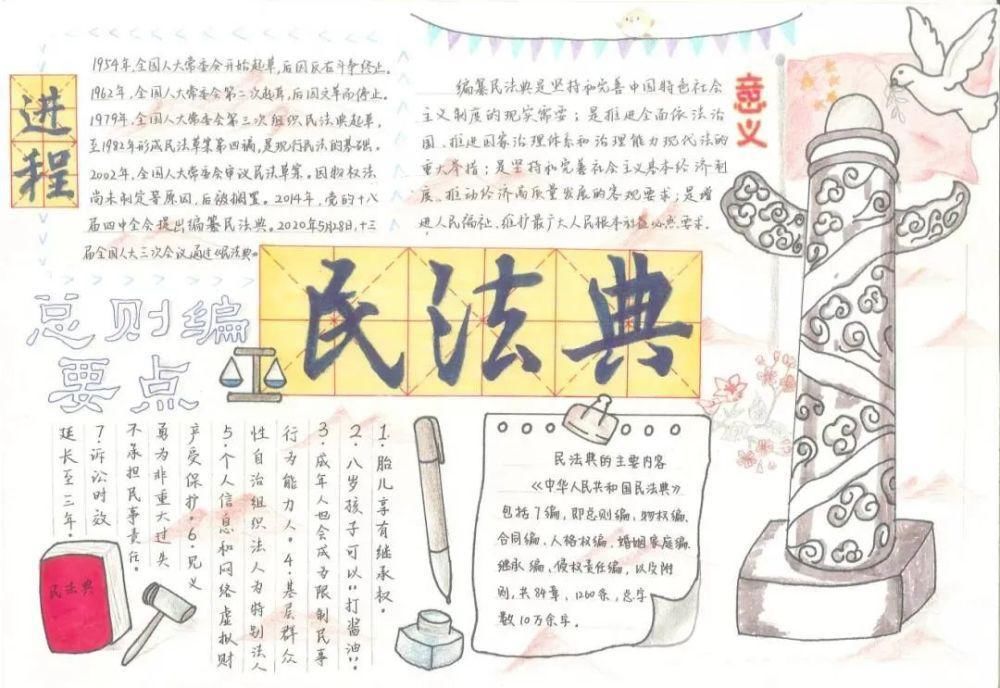 进程
1954年,全国人大常委会开始起草,后因反右斗争终止。
1962年,全国人大常委会第二次起草,后因文革而停止。
1979年,全国人大常委会第三次组织民法典起草,
至1982年形成民法草案第四稿,是现行民法的基础。
2002年,全国人大常委会审议民法草案,因物权法
尚未制定等原因,后被搁置。2014年,党的十八
届四中全会提出编纂民法典。2020年5月28日,十三
届全国人大三次会议通过《民法典》。
意义
编纂民法典是坚持和完善中国特色社会
主义制度的现实需要;是推进全面依法治
国、推进国家治理体系和治理能力现代法的
重大举措;是坚持和完善社会主义基本经济制
度、推动经济高质量发展的客观要求;是增
进人民福祉、维护最广大人民根本利益必然要求。
民法典
总则编
要点
1.胎儿享有继承权。
2.八岁孩子可以"打酱油"。
3.成年人也会成为限制民事
行为能力人。4.基层群众
性自治组织法人为特别法人
5.个人信息和网络虚拟财
产受保护。6.见义
勇为非重大过失
不承担民事责任。
7.诉讼时效
延长至三年。
民法典
民法典的主要内容
《中华人民共和国民法典》
包括7编,即总则编、物权编、
合同编、人格权编、婚姻家庭编、
继承编、侵权责任编,以及附
则,共84章,1260条,总字
数10万余字。